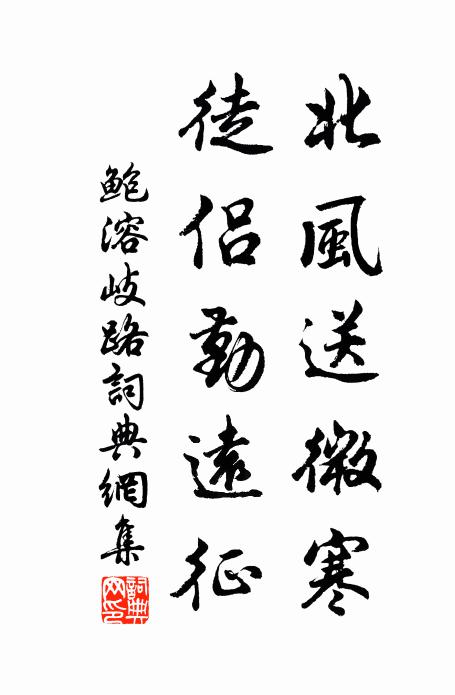 北風送微寒
徒侶勤遠征
鲍溶歧路詞典網集
詞典網印